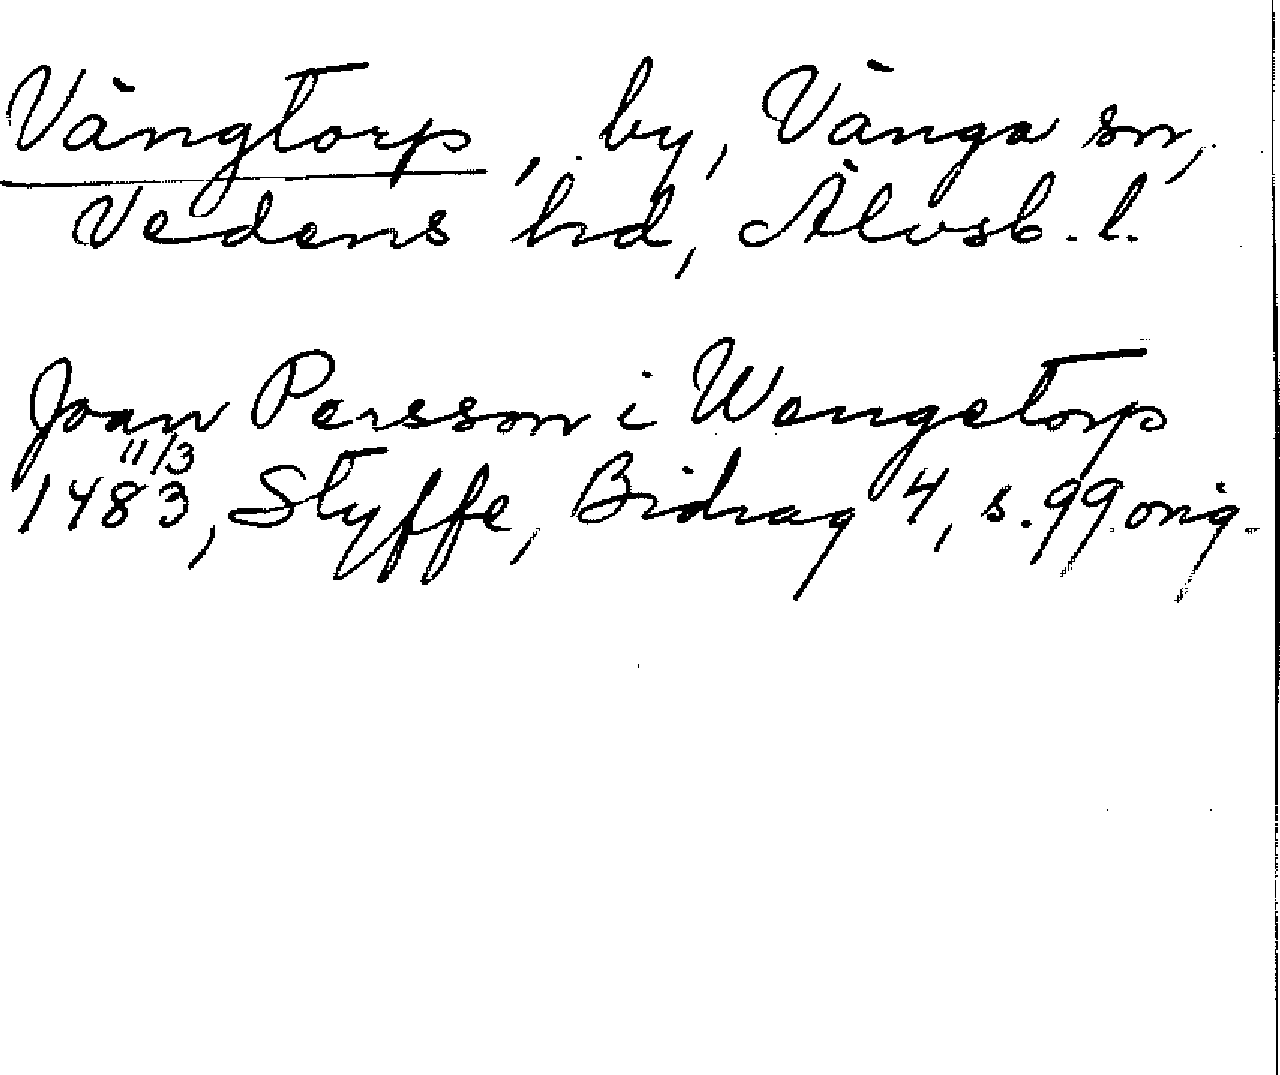 Vängtorp, by, Vänga sn,
Vedens hd, Älvsb. l.
Joan Persson i Wengetorp
11/3
1483, Styffe, Bidrag 4, s. 99 orig.